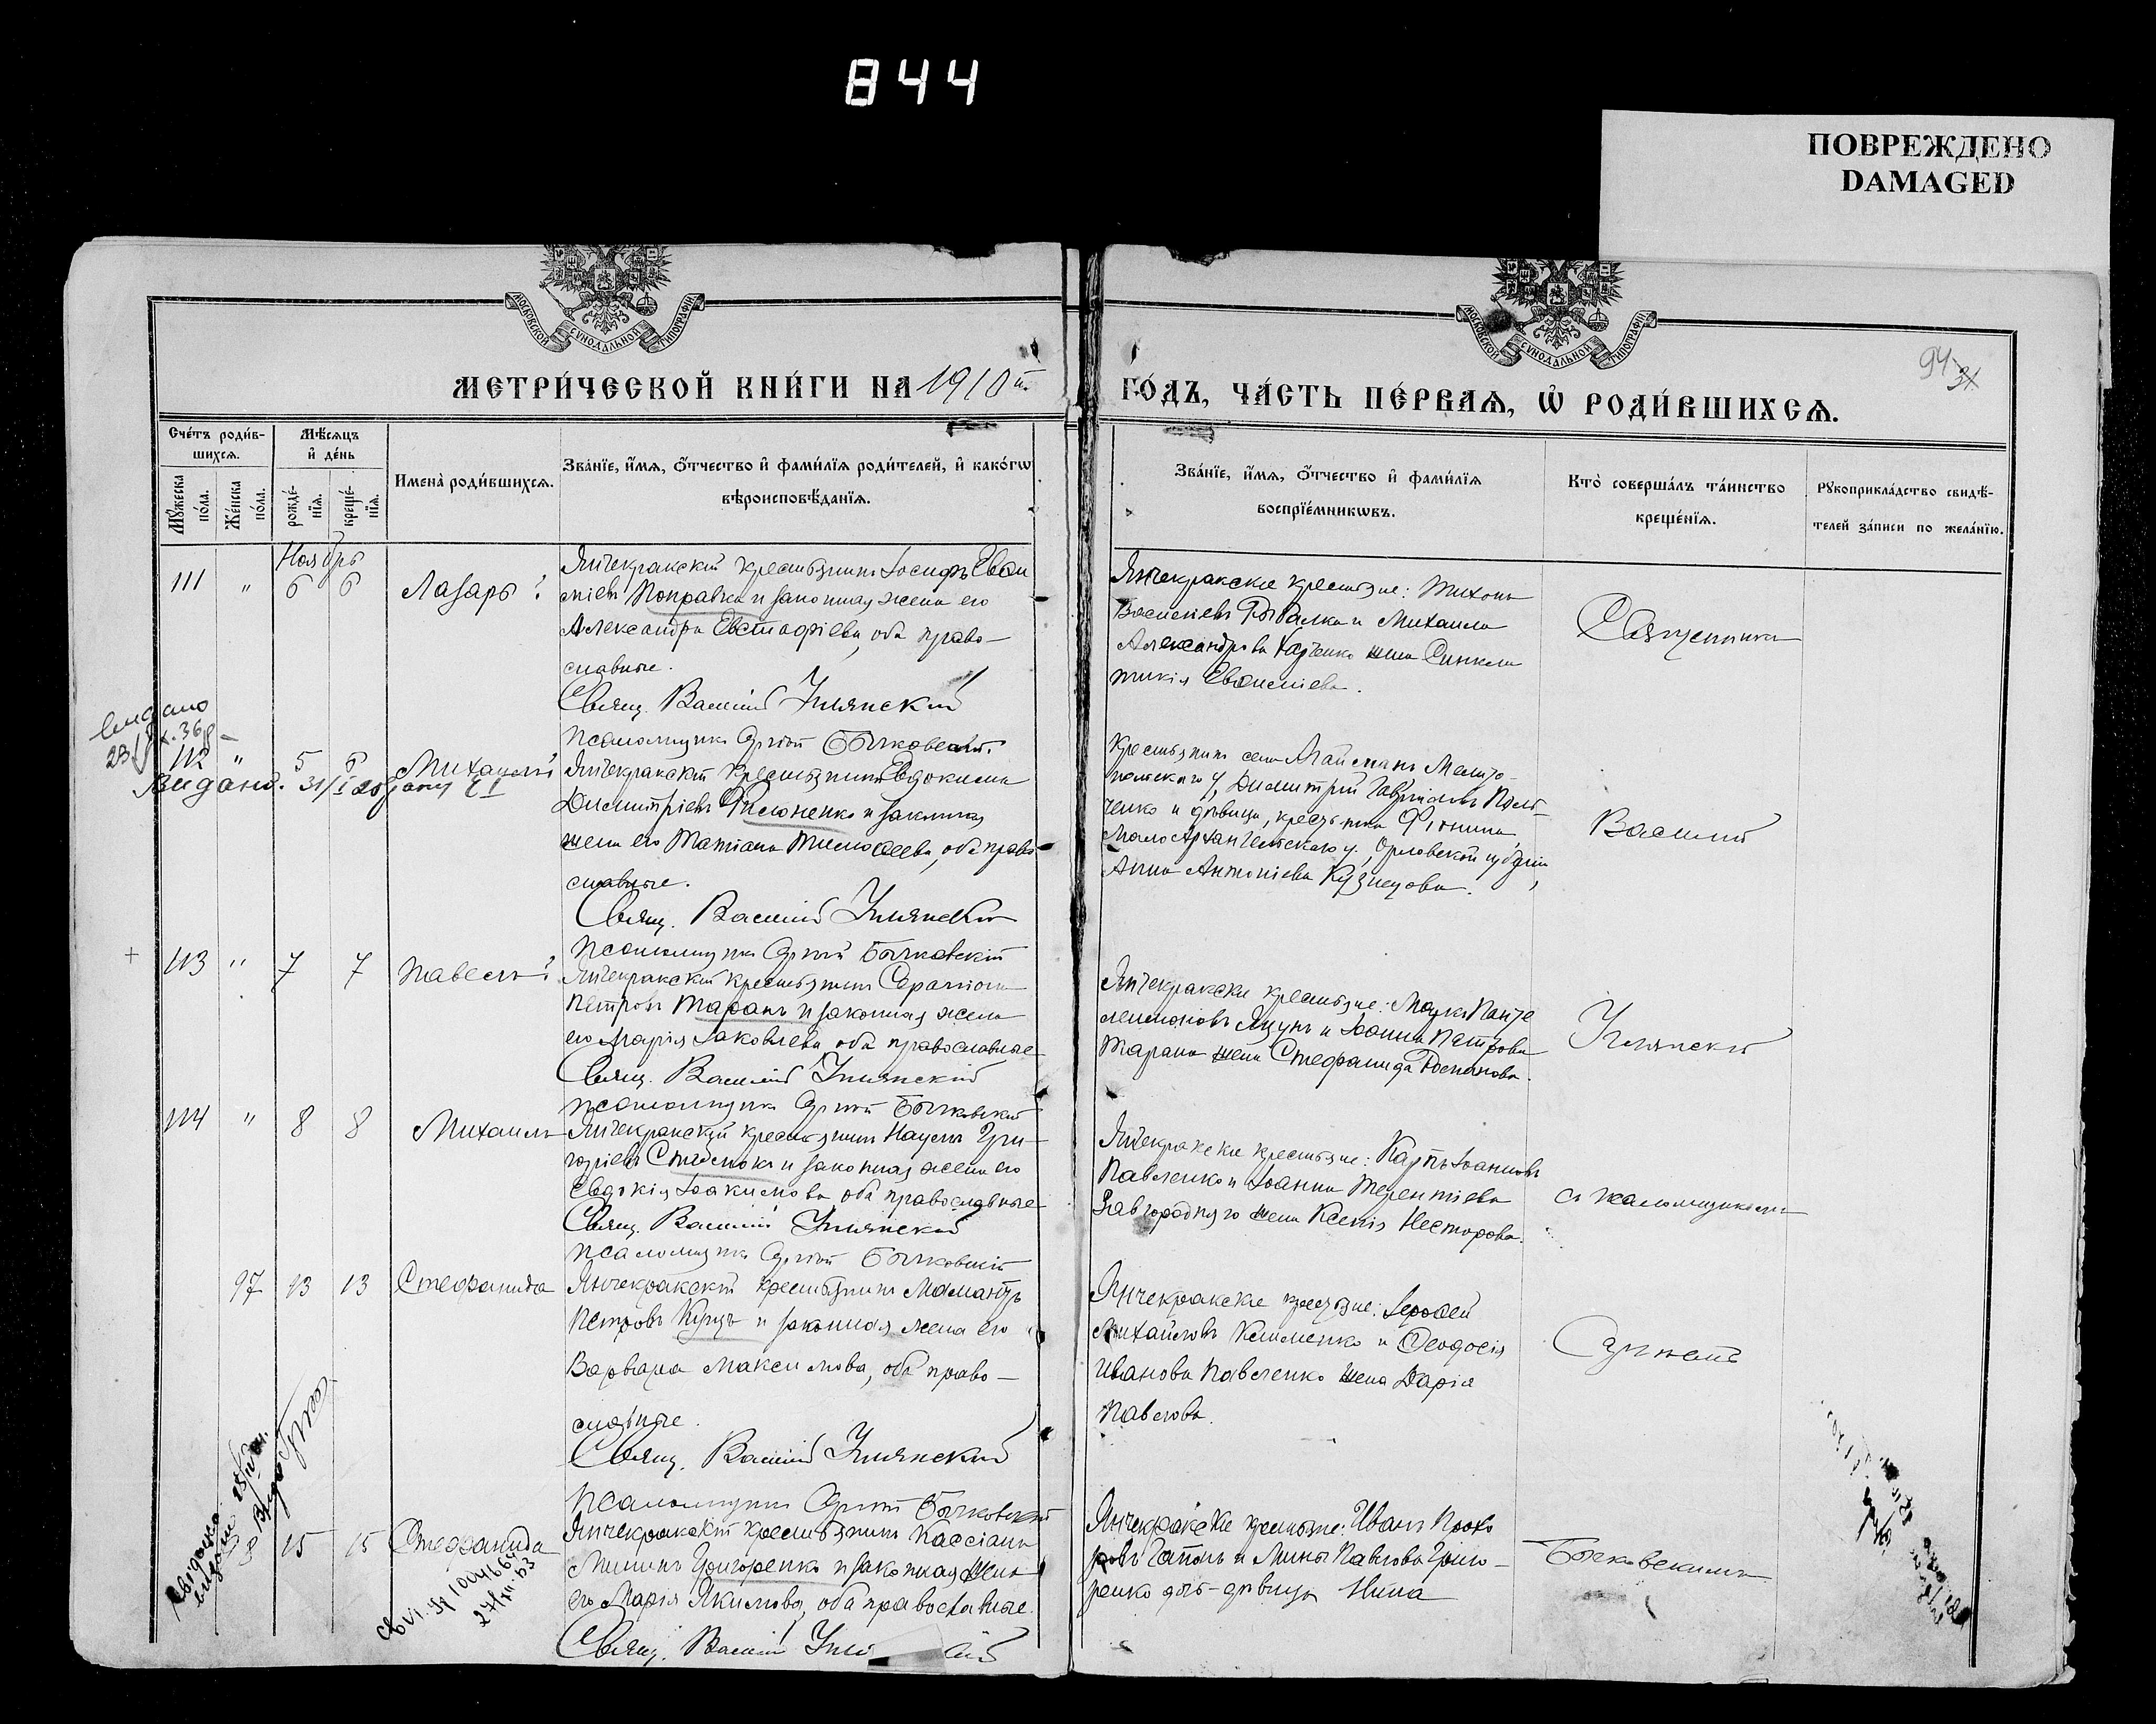 844
ПОВРЕЖДЕНО
DAMAGED
МОСКОВСКОЙ СѴНОДАЛЬНОЙ ТИПОГРАФІИ
МОСКОВСКОЙ СѴНОДАЛЬНОЙ ТИПОГРАФІИ
94
31
МЕТРИ́ЧЕСКОЙ КНИ́ГИ НА 1910й
ГО́ДЪ, ЧА́СТЬ ПЕ́РВАѦ, Ѡ҆ РОДИ́ВШИХСѦ.
Сче́тъ роди́в-
шихсѧ.
Мѣ́сѧцъ
и҆ де́нь
Мꙋ́жеска
по́ла.
Же́нска
по́ла.
рожде́-
нїѧ.
креще́-
нїѧ.
Имена̀ роди́вшихсѧ.
Зва́нїе, и҆́мѧ, ѻ҆́тчество и҆ фами́лїѧ роди́телей, и҆ како́гѡ
вѣроисповѣ́данїѧ.
Зва́нїе, и҆́мѧ, ѻ҆́тчество и҆ фами́лїѧ
воспрїе́мникѡвъ.
Кто̀ соверша́лъ та́инство
креще́нїѧ.
Рꙋкоприкла́дство свидѣ́-
телей за́писи по жела́нїю.
Ноябрь
111 " 6 6 Лазарь
Янчекракскій крестьянинъ Іосифъ Евѳи
міевъ Поправка и законная жена его
Александра Евстафіева, оба право-
славные.
Свящ. Василій Улянскій
Псаломщикъ Сергій Бычковскій.
Янчекракскіе крестьяне: Тихонъ
Василіевъ Рыбалка и Михаила
Александрова Харченко жена Синкли
тикія Евѳиміева.
Священникъ
видано
112 " 5 6 Михаилъ
Видано. 31/I
Янчекракскій крестьянинъ Евдокимъ
Димитріевъ Филоненко и законная
жена его Татіана Тимоѳеева, оба право
славные.
Свящ. Василій Улянскій
Псаломщикъ Сергій Бычковскій
Крестьянинъ села Агайманъ Мелито-
польскаго у, Димитрій Гавріиловъ
ченко и дѣвица,
Малоархангельскаго у., Орловской губерніи,
Анна Антоніева Кузнецова.
Василій
+
113 " 7 7 Павелъ
Янчекракскій крестьянинъ Серапіонъ
Петровъ Таранъ и законная жена
его Марія Іаковлева оба православные
Свящ. Василій Улянскій
Псаломщикъ Сергій Бычковскій
Янчекракскіе крестьяне: Марко Панте
леимоновъ Яцунъ и Іоанна Петрова
Тарана жена Стефанида
Улянскій
114 " 8 8 Михаилъ
Янчекракскій крестьянинъ Наумъ Гри-
горіевъ и законная жена его
Евдокія Іоакимова оба православные
Свящ. Василій Улянскій
Псаломщикъ Сергій Бычковскій
Янчекракскіе крестьяне: Карпъ Іоанновъ
Павленко и Іоанна Терентіева
Завгородняго жена Ксенія Несторова.
съ псаломщикомъ
97 13 13 Стефанида
Янчекракскій крестьянинъ Мамантъ
Петровъ Куцъ и законная жена его
Варвара Максимова, оба право-
славные.
Свящ. Василій Улянскій
Псаломщикъ Сергій Бычковскій
Янчекракскіе крестьяне: Іероѳей
Михайловъ Клименко и Ѳеодосія
Иванова Павленко жена Дарія
Павлова.
Сергіемъ
98 15 15 Стефанида
Янчекракскій крестьянинъ Кассіанъ
Мининъ Григоренко и законная жена
его Марія Якимова, оба православные.
Свящ. Василій
Янчекракскіе крестьяне: Иванъ Прохо
ровъ Гапонъ и Мины Павлова Григо-
ренко дочь-дѣвица Нина
Бычковскимъ
27/XII 53